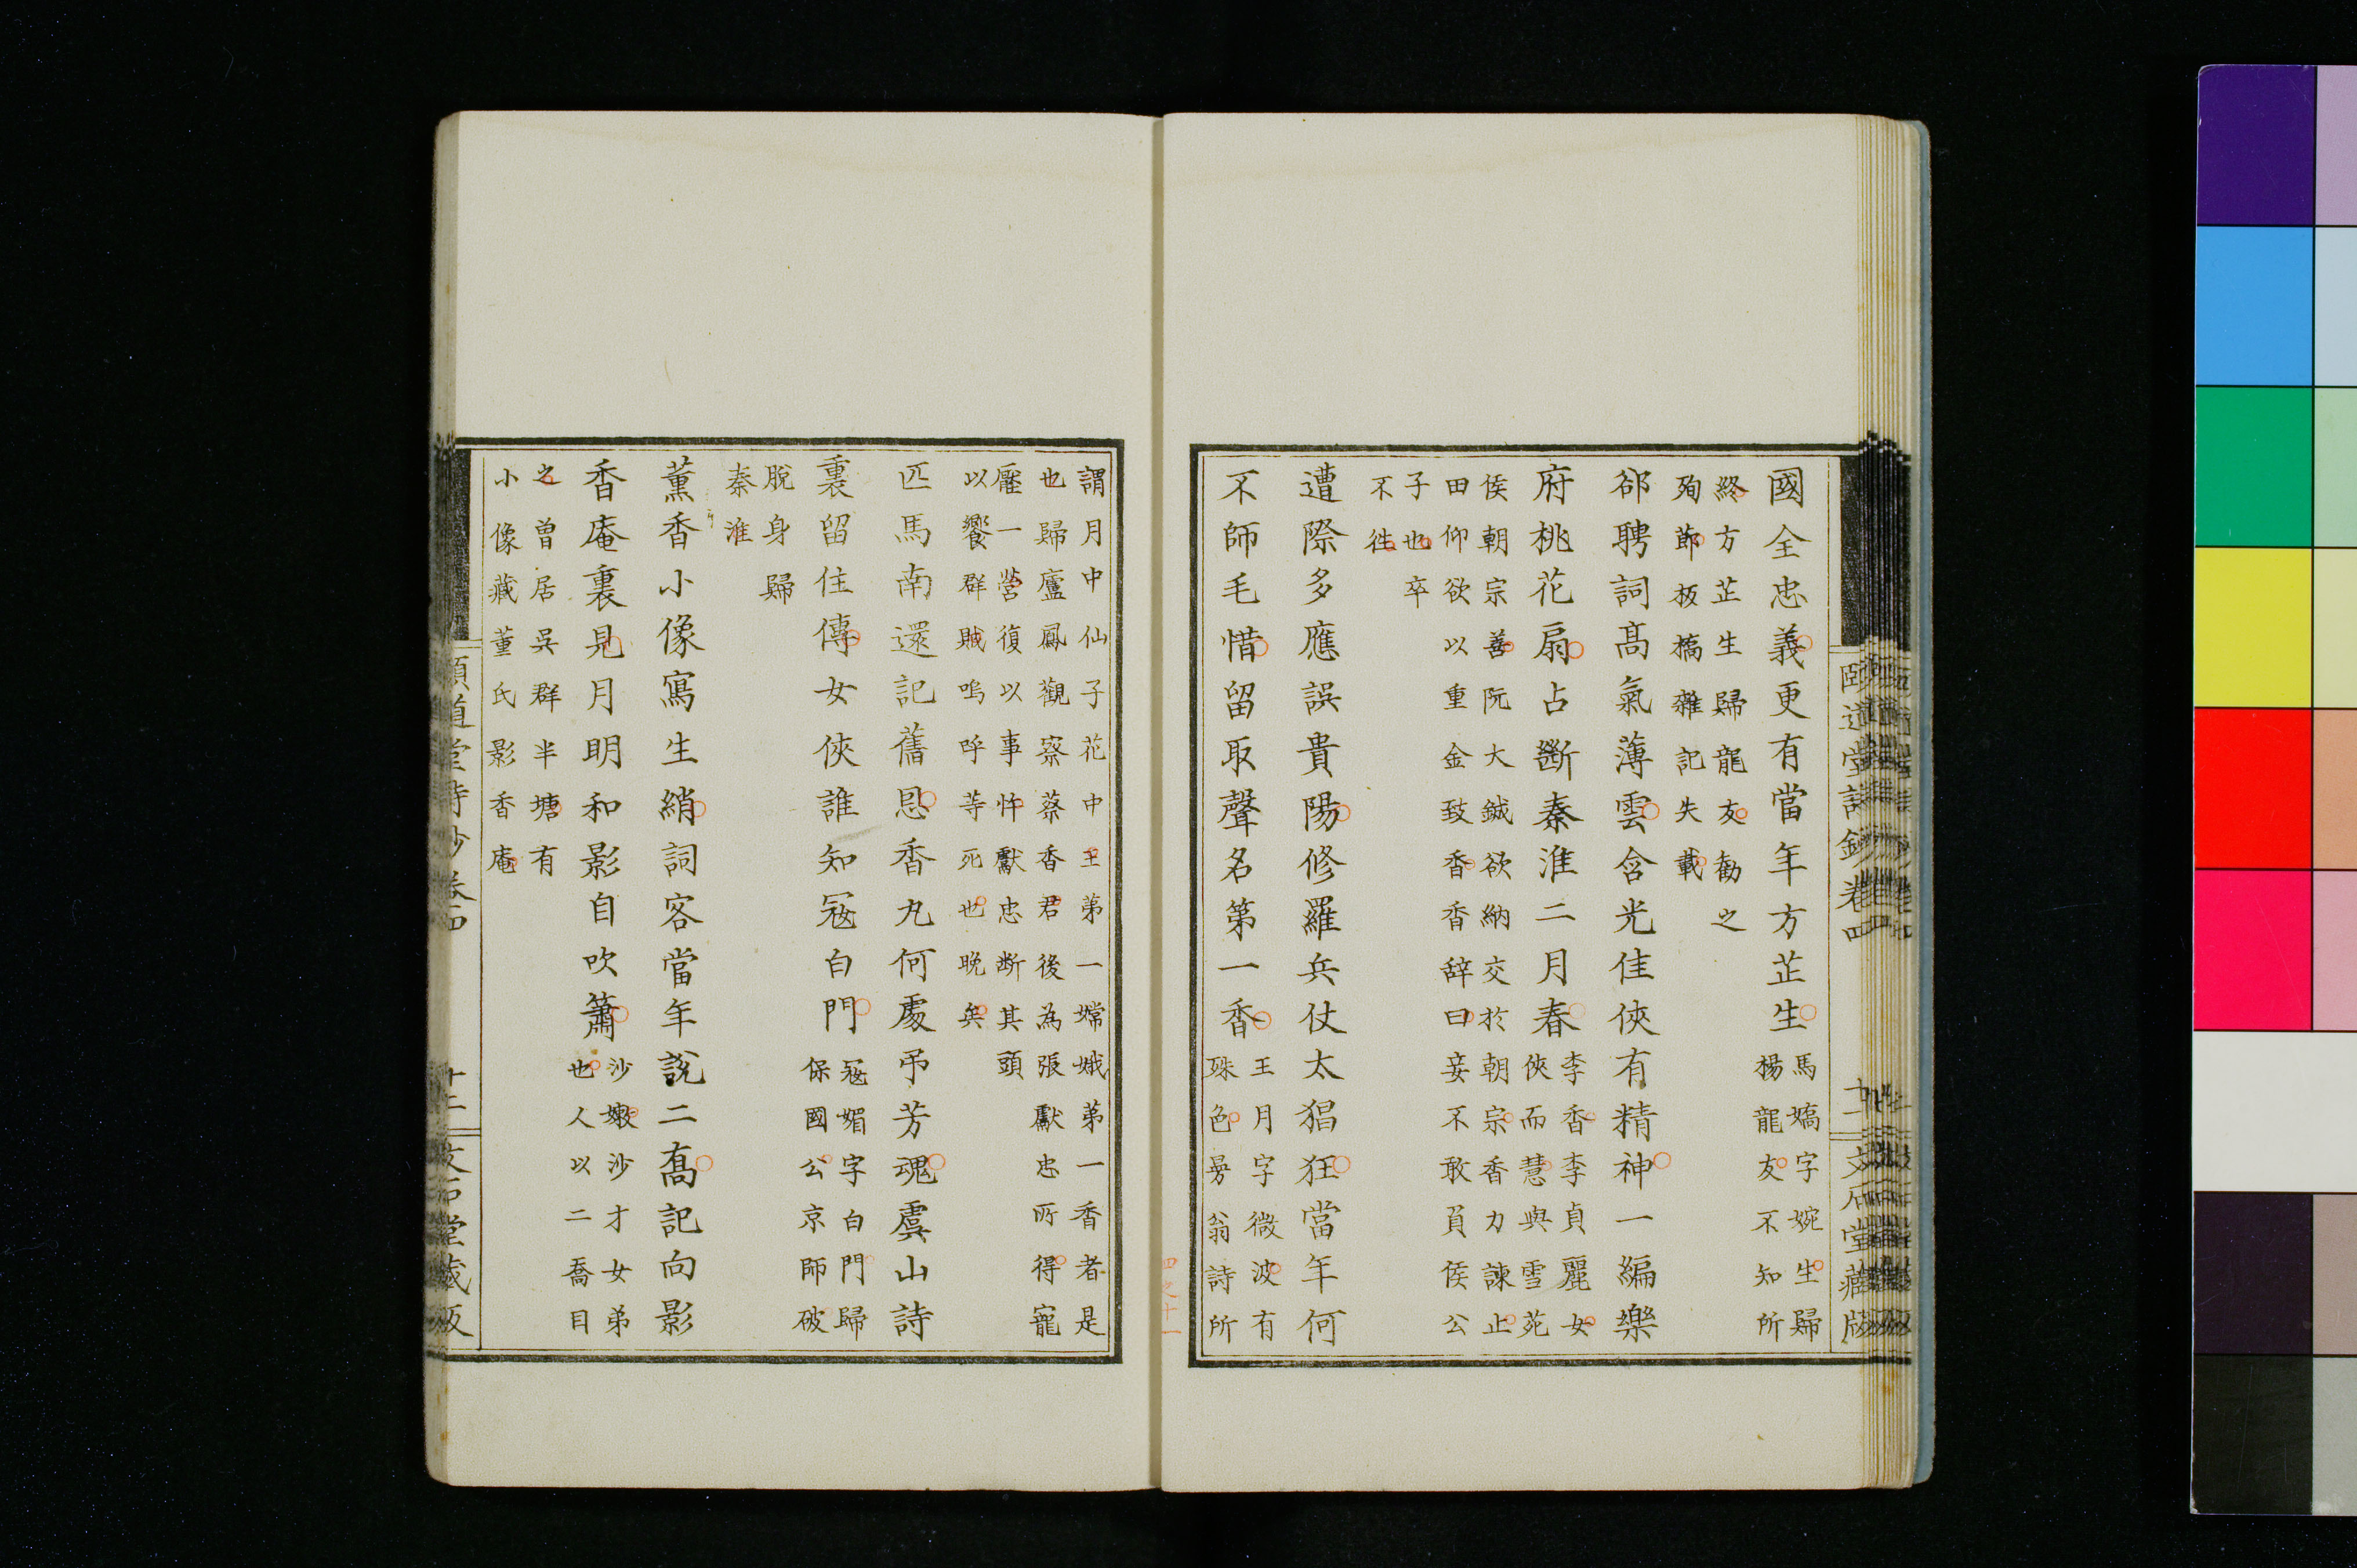 國全忠義更有當年方芷生馬嬌字婉生歸
楊龍友不知所
終方芷生歸龍友勸之
殉節板橋雜記失載
郤聘詞高氣薄雲含光佳俠有精神一編樂
府桃花扇占斷秦淮二月春李香李貞麗女
俠而慧與雪苑
侯朝宗善阮大鋮欲納交於朝宗香力諫止
田仰欲以重金致香香辭曰妾不敢負侯公
子也卒
不徃
遭際多應誤貴陽修羅兵仗太猖狂當年何
不師毛惜留取聲名第一香王月字微波有
殊色曼翁詩所
頤道堂詩鈔卷四
十一
文石堂藏版
四之十一
謂月中仙子花中王第一嫦娥第一香者是
也歸廬鳳觀察蔡香君後為張獻忠所得寵
壓一營復以事忤獻忠断其頭
以饗群賊嗚呼等死也晚矣
匹馬南還記舊恩香丸何處弔芳魂虞山詩
裏留住傳女俠誰知寇白門寇媚字白門歸
保國公京師破
脫身歸
秦淮
薰香小像寫生綃詞客當年說二喬記向影
香庵裏見月明和影自吹簫沙嫩沙才女弟
也人以二喬目
之曾居吳群半塘有
小像藏董氏影香庵
頤道堂詩鈔卷四
十二
文石堂藏版